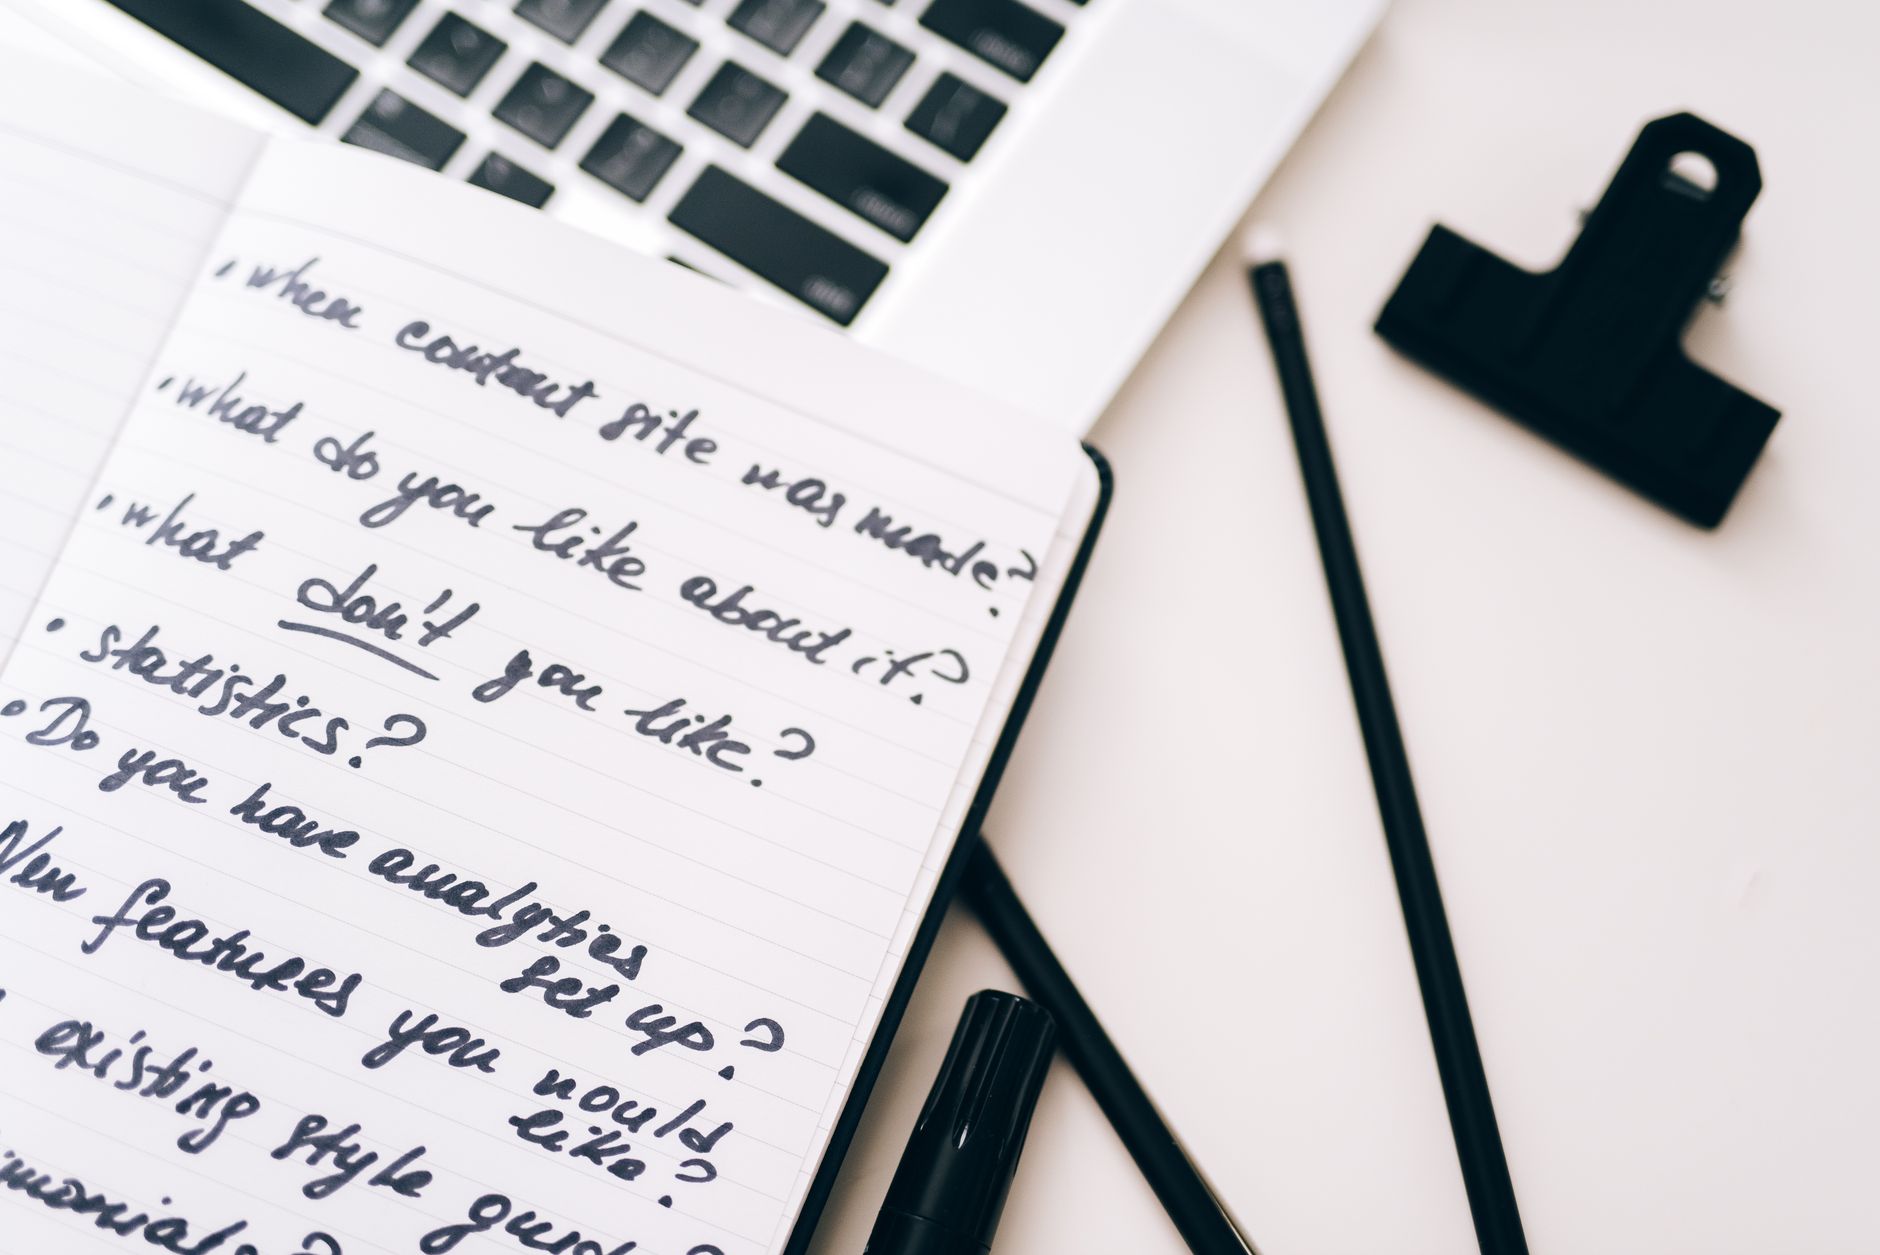 • when contant site was made?
• what do you like about it?
• what don't you like?
• statistics?
• Do you have analytics
set up?
New features you would
like?
existing style guid
imonials?